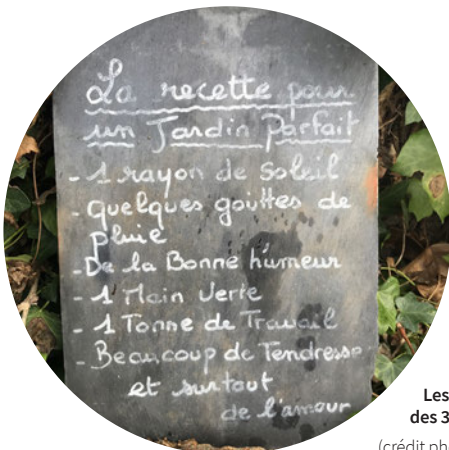 La recette pour
un Jardin Parfait
- 1 rayon de soleil
- quelques gouttes de
pluie
- De la Bonne humeur
- 1 Main Verte
- 1 Tonne de Travail
- Beaucoup de Tendresse
et surtout
de l'amour
Les
des 3
(crédit ph